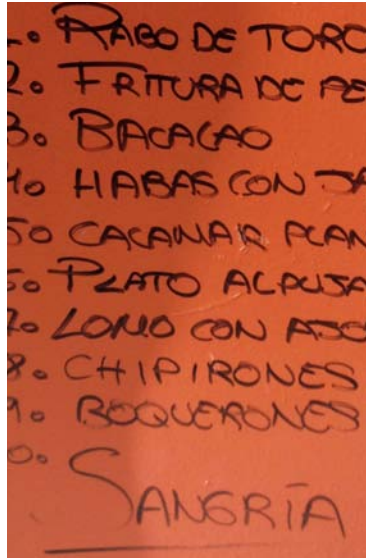 1. RABO DE TORO
2. FRITURA DE PE
3. BACALAO
4. HABAS CON JA
5. CALAMAR PLAN
6. PLATO ALPUJA
7. LOMO CON AJO
8. CHIPIRONES
9. BOQUERONES
0.
SANGRÍA